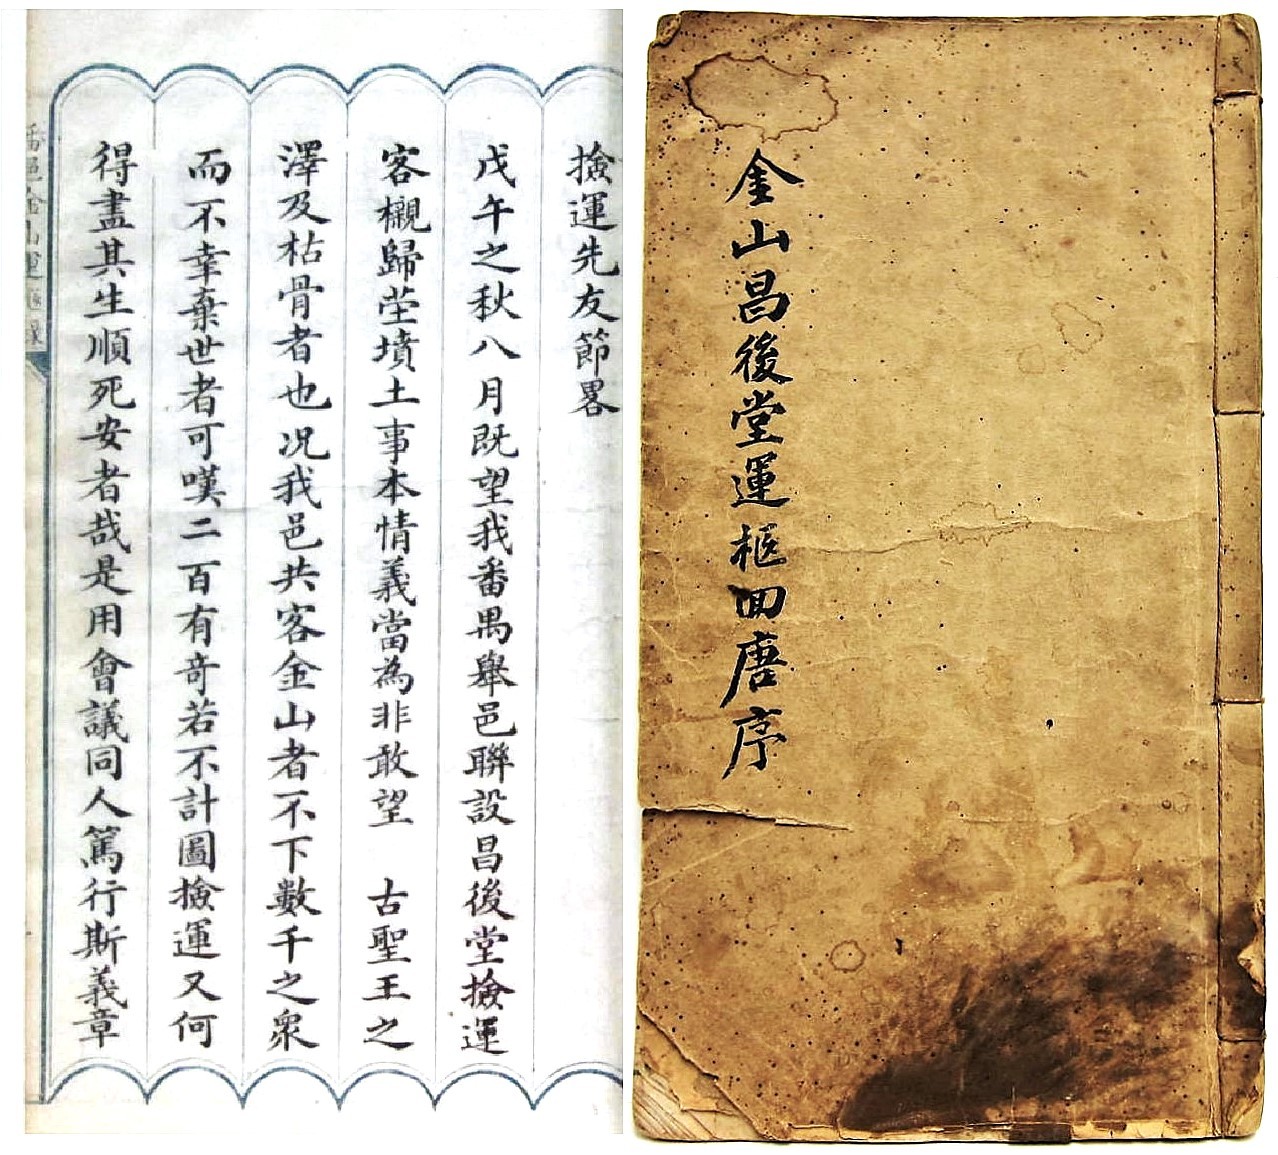 撿運先友節畧
戊午之秋八月既望我番禺舉邑聯設昌後堂撿運
客櫬歸塋墳土事本情義當為非敢望 古聖王之
澤及枯骨者也况我邑共客金山者不下數千之衆
而不幸棄世者可嘆二百有奇若不計圖撿運又何
得盡其生順死安者哉是用會議同人篤行斯義章
金山昌後堂運柩回唐序